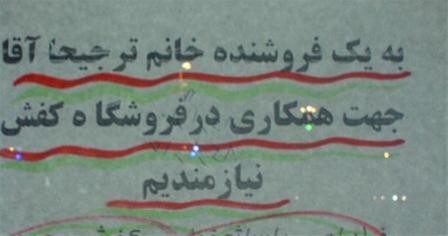 به یک فروشنده خانم ترجیحا آقا
جهت همکاری درفروشگا ه کفش
نیازمندیم